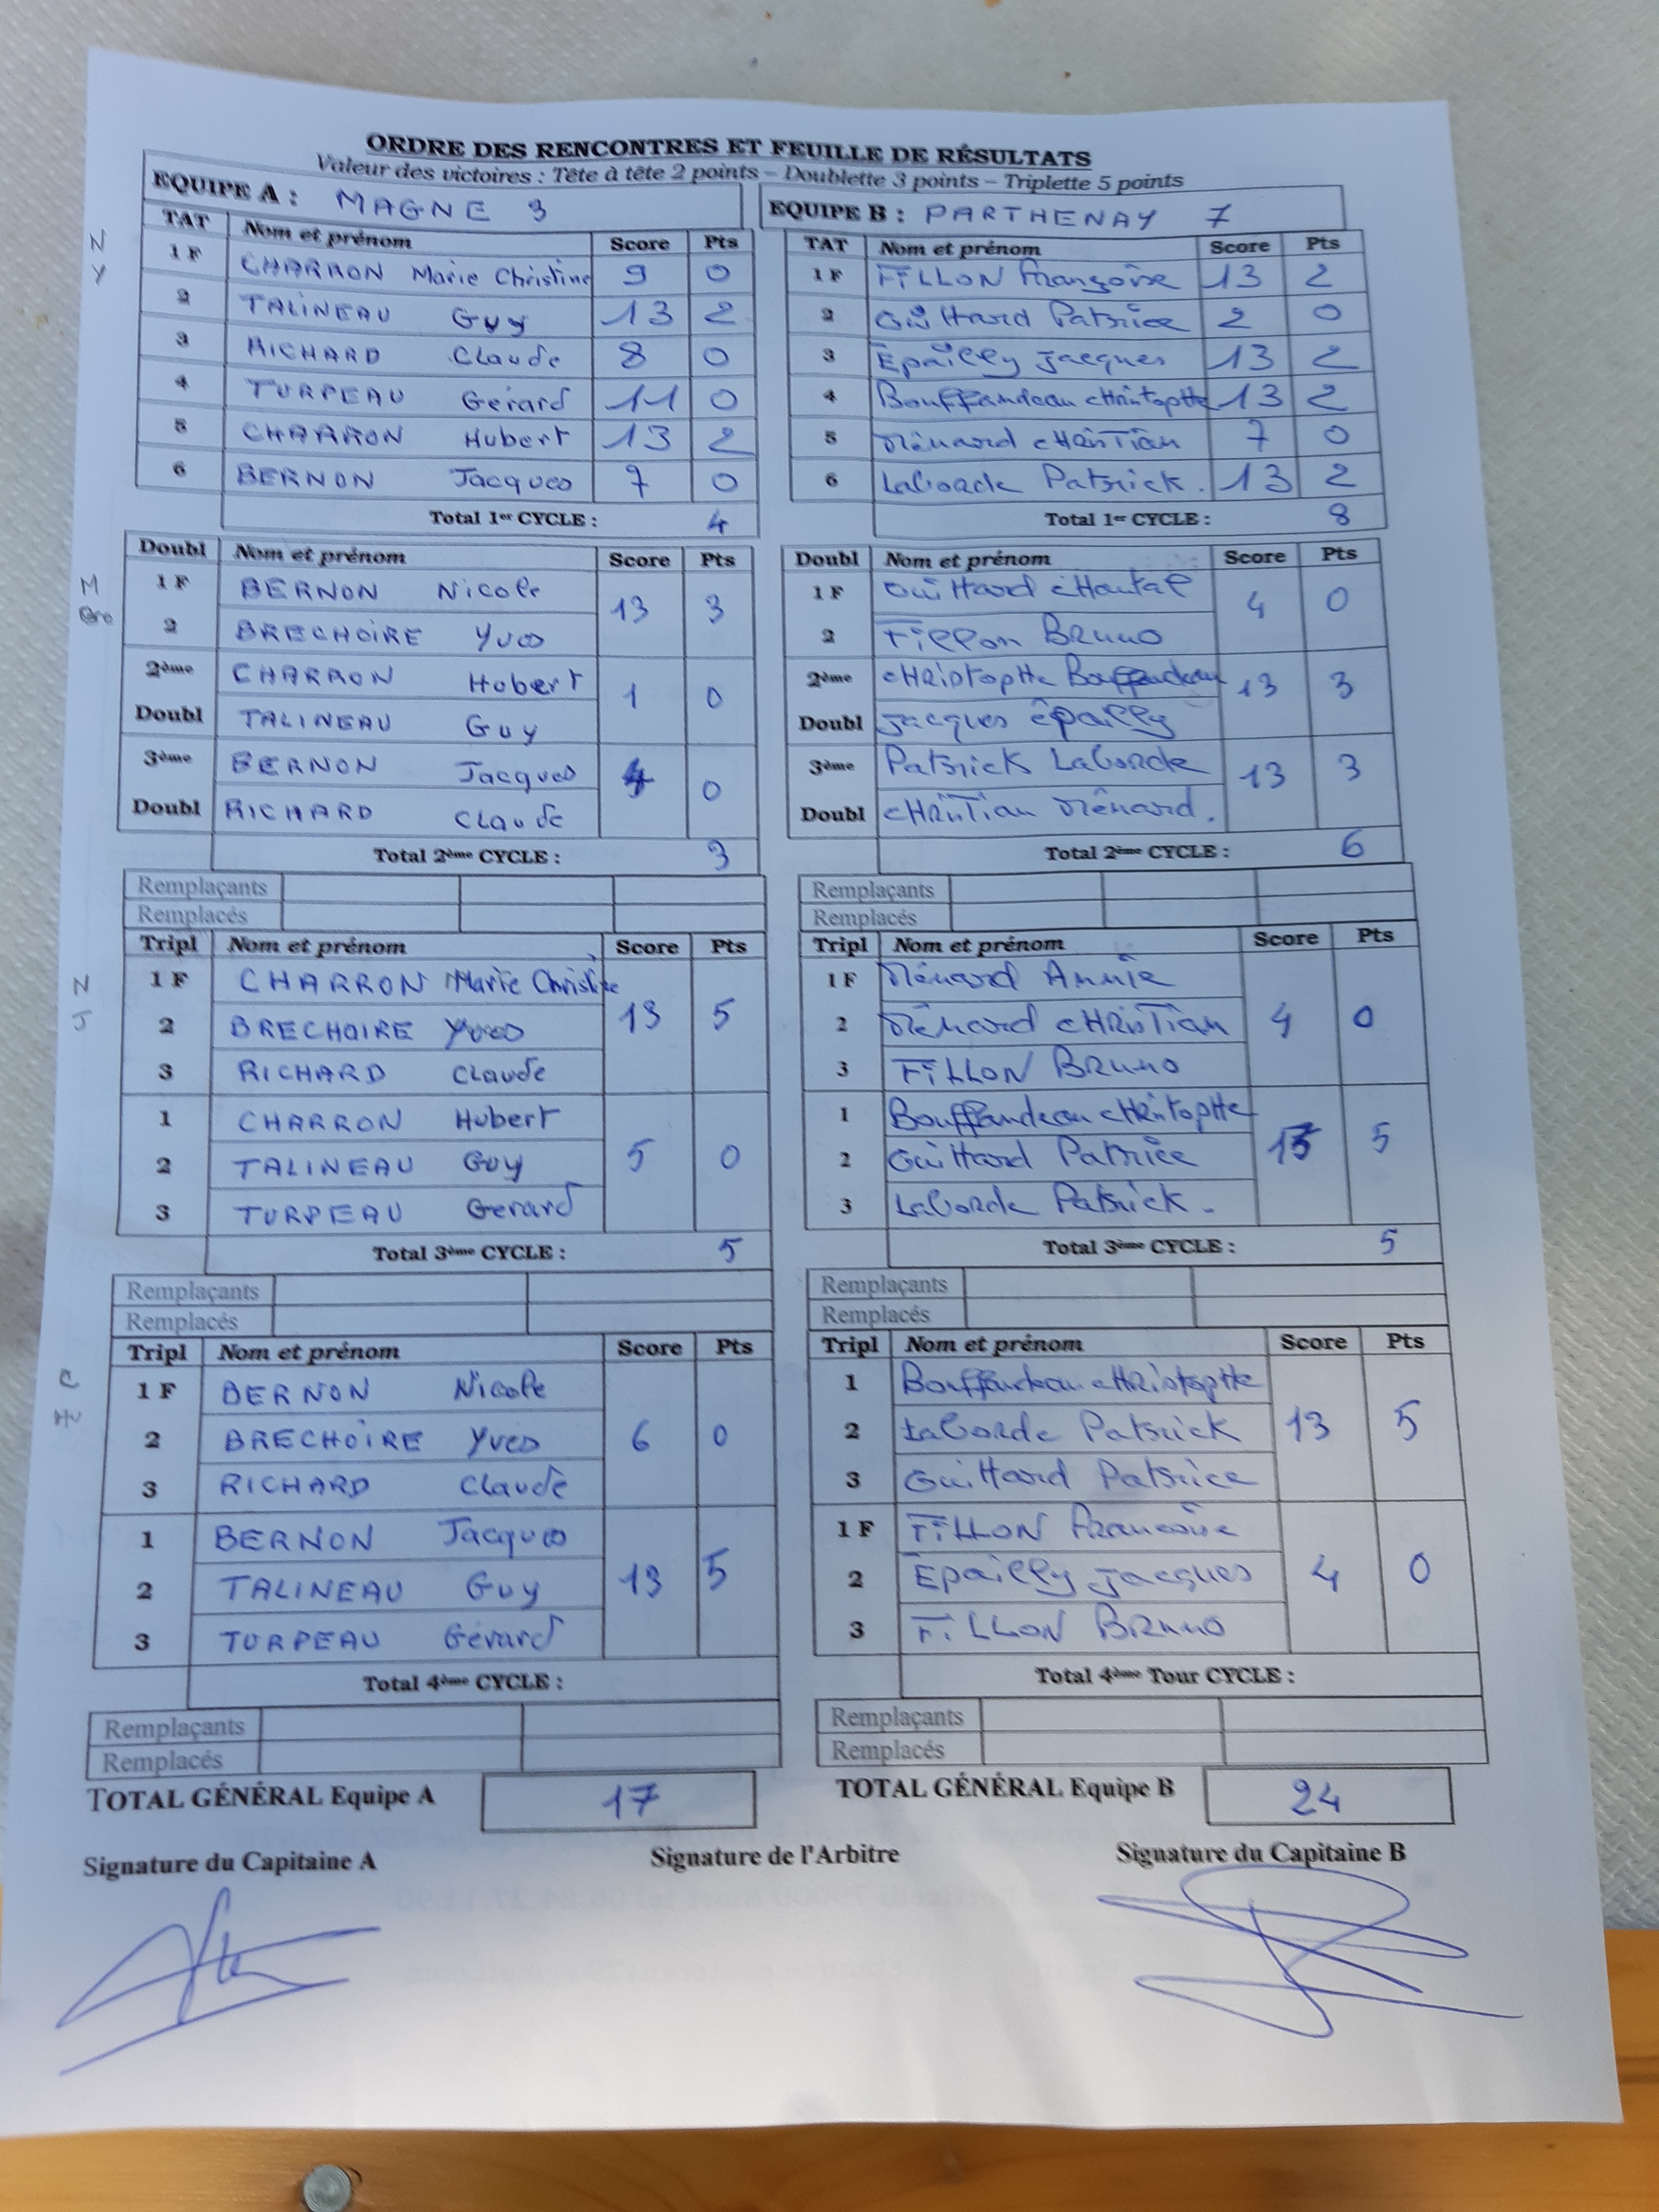 ORDRE DES RENCONTRES ET FEUILLE DE RÉSULTATS
Valeur des victoires : Tête à tête 2 points – Doublette 3 points – Triplette 5 points
EQUIPE A : MAGNE 3
TAT Nom et prénom Score Pts
1 F CHARRON Marie Christine 9 0
2 TALINEAU Guy 13 2
3 RICHARD Claude 8 0
4 TURPEAU Gérard 11 0
5 CHARRON Hubert 13 2
6 BERNON Jacques 7 0
Total 1er CYCLE : 4
EQUIPE B : PARTHENAY 7
TAT Nom et prénom Score Pts
1 F FILLON Françoise 13 2
2 Guittard Patrice 2 0
3 Epailly Jacques 13 2
4 Bouffandeau CHristopHe 13 2
5 Ménard CHRisTian 7 0
6 Laborde Patrick. 13 2
Total 1er CYCLE : 8
N
Y
Doubl Nom et prénom Score Pts
1 F BERNON Nicole 13 3
2 BRECHOIRE Yves
2ème CHARRON Hubert 1 0
Doubl TALINEAU Guy
3ème BERNON Jacques 4 0
Doubl RICHARD Claude
Total 2ème CYCLE : 3
Doubl Nom et prénom Score Pts
1 F Guittard CHantal 4 0
2 Fillon Bruno
2ème CHRistopHe Bouffandeau 13 3
Doubl Jacques épailly
3ème Patrick Laborde 13 3
Doubl CHRisTian Ménard.
Total 2ème CYCLE : 6
M
Remplaçants
Remplacés
Tripl Nom et prénom Score Pts
1 F CHARRON Marie Christine 13 5
2 BRECHOIRE Yves
3 RICHARD Claude
1 CHARRON Hubert 5 0
2 TALINEAU Guy
3 TURPEAU Gerard
Total 3ème CYCLE : 5
Remplaçants
Remplacés
Tripl Nom et prénom Score Pts
1 F Ménard Annie 4 0
2 Ménard CHRisTian
3 FILLON Bruno
1 Bouffandeau CHristopHe 13 5
2 Guittard Patrice
3 Laborde Patrick.
Total 3ème CYCLE : 5
N
J
Remplaçants
Remplacés
Tripl Nom et prénom Score Pts
1 F BERNON Nicole 6 0
2 BRECHOIRE Yves
3 RICHARD Claude
1 BERNON Jacques 13 5
2 TALINEAU Guy
3 TURPEAU Gérard
Total 4ème CYCLE :
Remplaçants
Remplacés
Remplaçants
Remplacés
Tripl Nom et prénom Score Pts
1 Bouffandeau CHRistopHe 13 5
2 Laborde Patrick
3 Guittard Patrice
1 F FILLON Francoise 4 0
2 Epailly Jacques
3 FILLON Bruno
Total 4ème Tour CYCLE :
Remplaçants
Remplacés
C
TOTAL GÉNÉRAL Equipe A 17
TOTAL GÉNÉRAL Equipe B 24
Signature du Capitaine A
Signature de l'Arbitre
Signature du Capitaine B